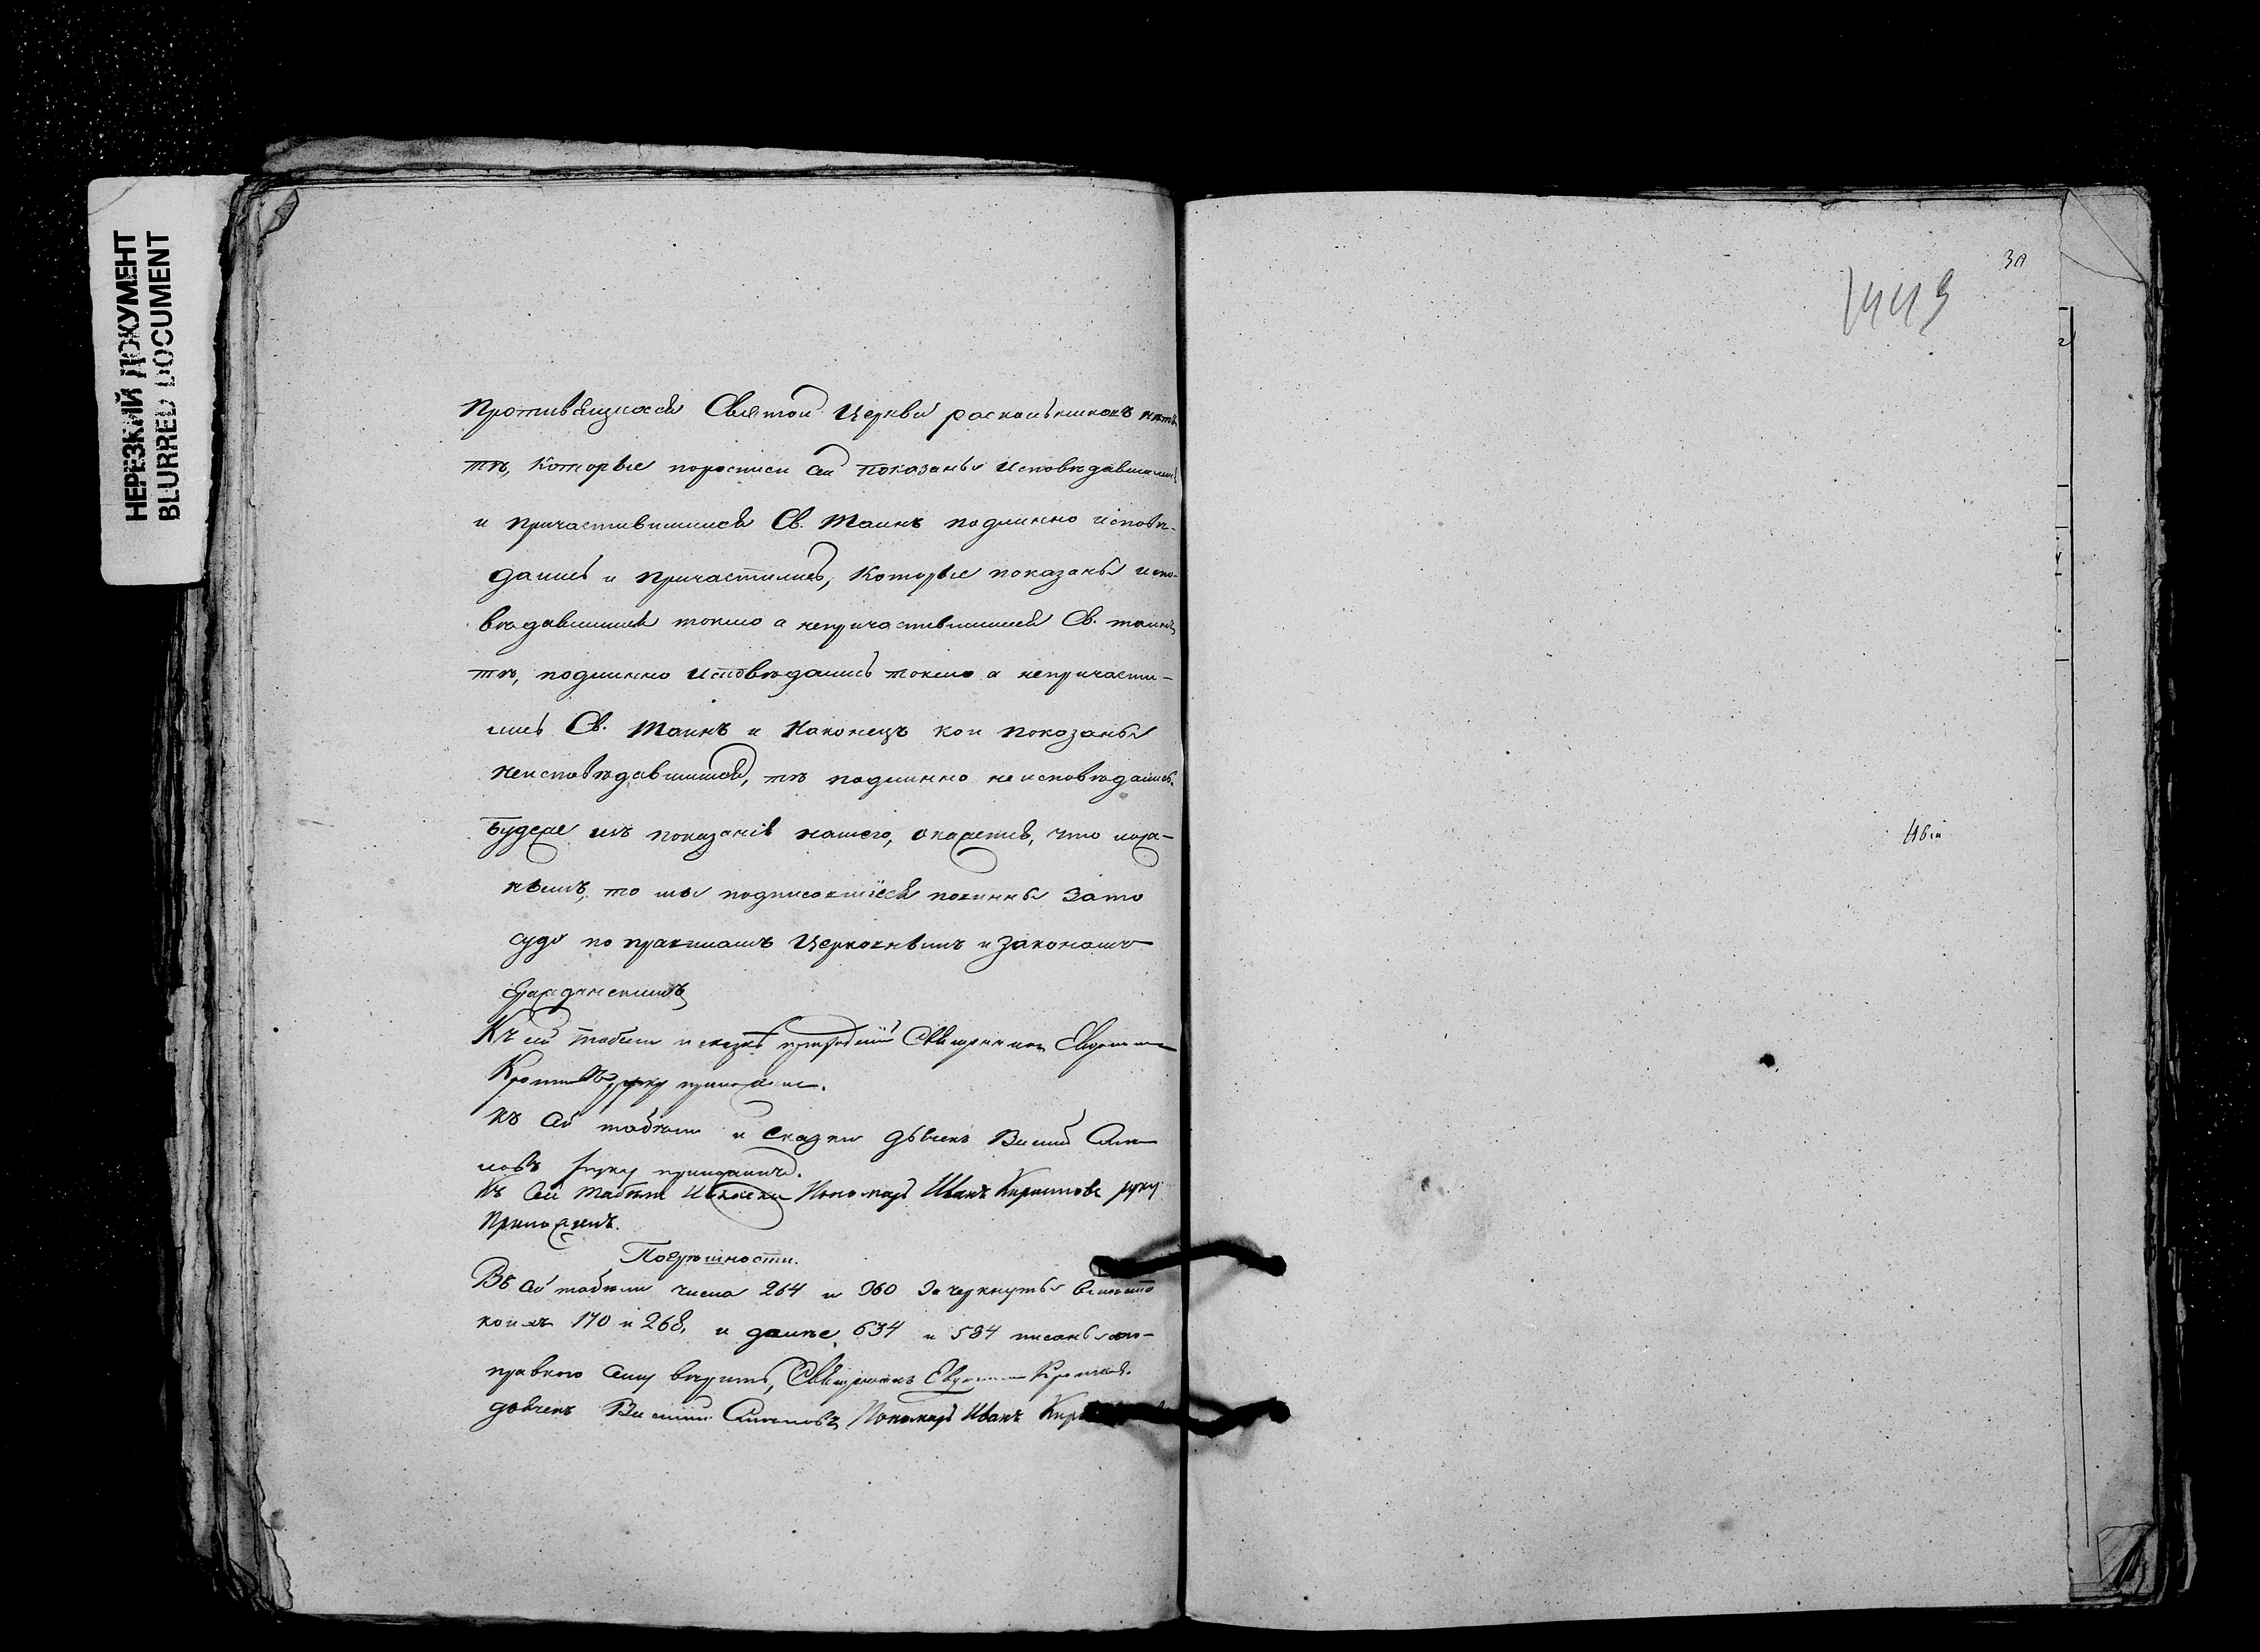 НЕРЕЗКИЙ ДОКУМЕНТ
BLURRED DOCUMENT
Противящихся Святой Церкви раскольниковъ нѣтъ
тѣ, которые поросписи сей показаны исповѣдавшимися
и причастившимися Св. Таинъ подлинно исповѣ-
дались и причастились, которые показаны испо-
вѣдавшимися токмо а непричастившимися Св. таинъ
тѣ, подлинно исповѣдались токмо а непричасти-
лись Св. Таинъ и наконецъ кои показаны
неисповѣдавшимися, тѣ подлинно не исповѣдались.
Буде же изъ показанія нашего, окажется, что ложн-
нымъ, то мы подписавшіеся повинны зато
суду по правиламъ Церковнымъ и законамъ
гражданскимъ
Къ сей табели и сказкѣ Священникъ
руку приложилъ.
къ сей табели и сказки дьячекъ
руку приложилъ.
Къ сей табели Пономарь Иванъ Кириловъ руку
приложилъ.
Погрѣшности.
Въ сей табели числа 264 и 360 зачеркнуты вмѣсто
коихъ 170 и 268, и далѣе 634 и 584 писаны по-
правкою сему вѣрить, Священникъ
дьячекъ Пономарь Иванъ
30
1443